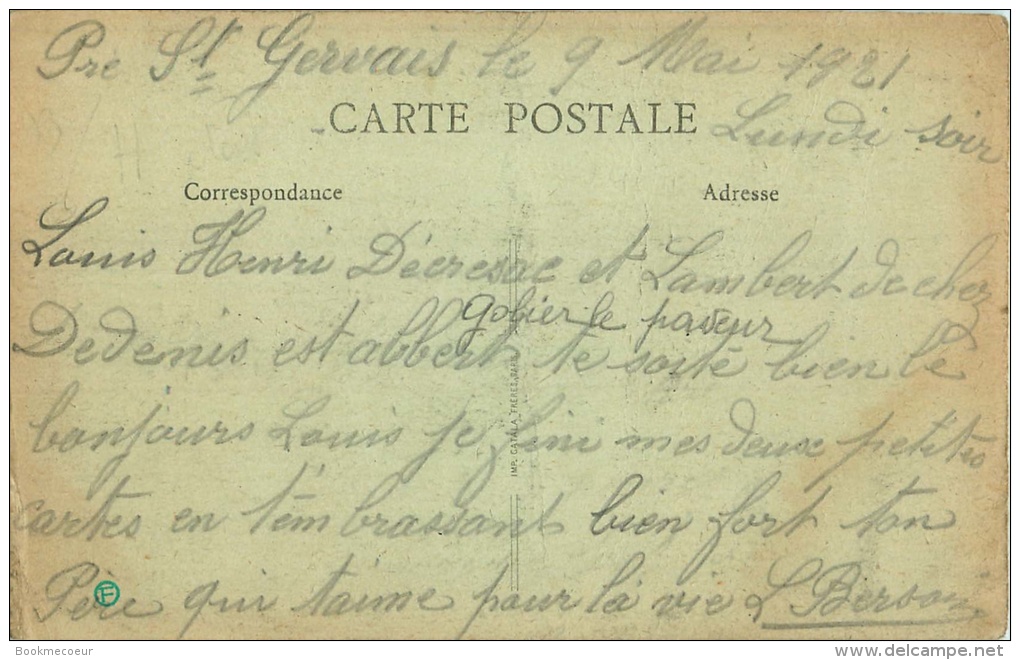 Pre St Gervais le 9 Mai 1921
CARTE POSTALE
Lundi soir
Correspondance
Adresse
Louis Henri Décresac et Lambert de chez
Gobier le paveur
Dedenis est abbert te soite bien le
bonjours Louis je fini mes deux petites
cartes en t'embrassant bien fort ton
Père qui t'aime pour la vie L Berson
IMP. CATALA FRERES, PARIS
Bookmecoeur
www.delcampe.net